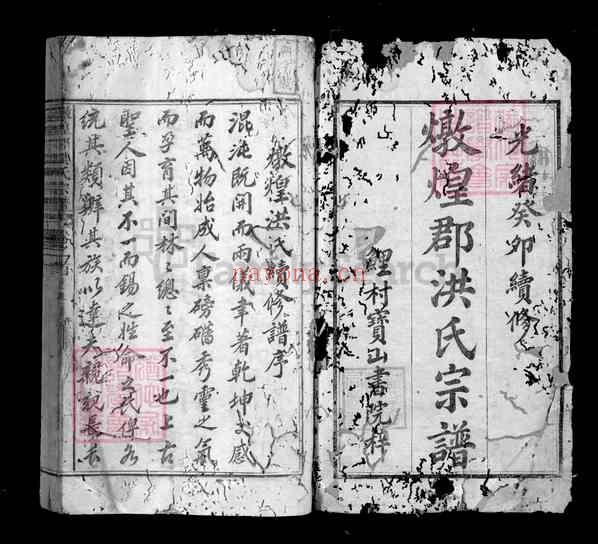 光緒癸卯續修
燉煌郡洪氏宗譜
鯉村寶山書院梓
燉煌洪氏續修譜序
混沌既開而兩儀聿著乾坤交感
而萬物始成人稟磅礴秀靈之氣
而孕育其間林々總々至不一也上古
聖人因其不一而錫之姓俞立氏俾各
統其類辨其族以達夫親親長長
navona.cn